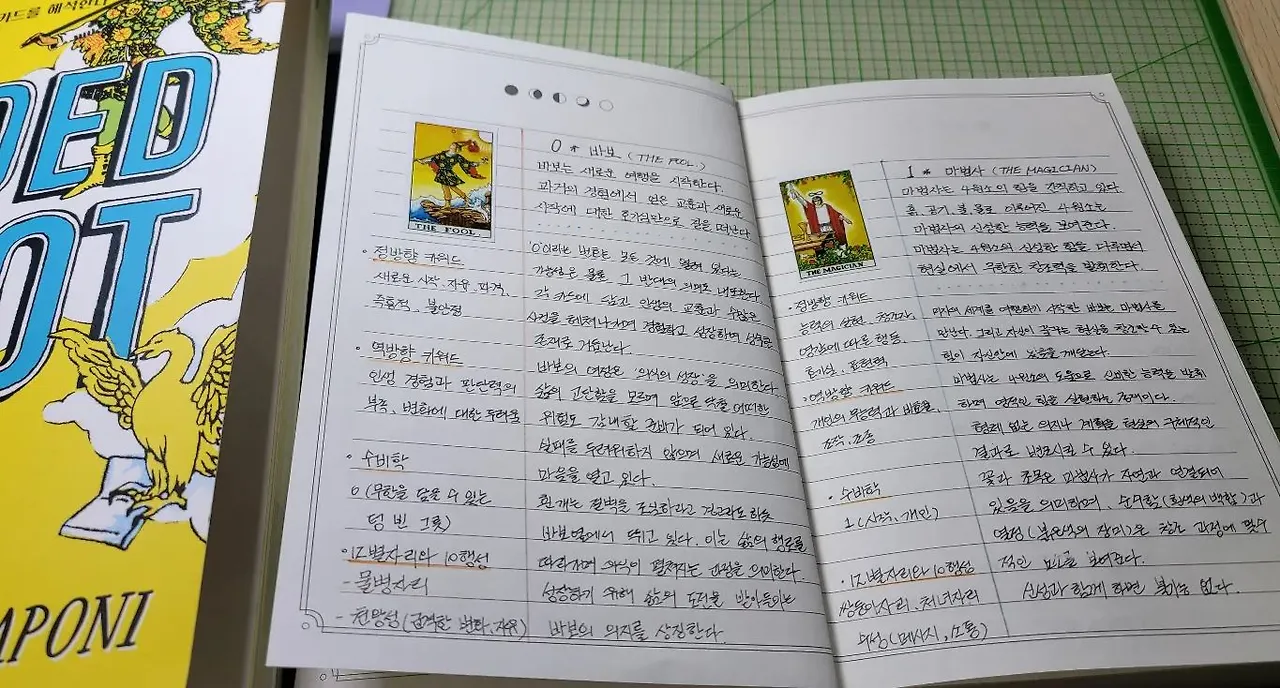 카드를 해석한다
DED
OT
APONI
0 * 바보 (THE FOOL)
바보는 새로운 여행을 시작한다.
과거의 경험에서 얻은 교훈과 새로운
시작에 대한 호기심만으로 길을 떠난다.
THE FOOL
• 정방향 키워드
새로운 시작, 자유, 파격,
즉흥적, 불안정
• 역방향 키워드
인생 경험과 판단력의
부족, 변화에 대한 두려움
• 수비학
0 (무한을 담을 수 있는
텅 빈 그릇)
• 12별자리와 10행성
- 물병자리
- 천왕성 (급격한 변화, 자유)
'0'이라는 번호는 모든 것에 열려 있다는
가능성은 물론 그 반대의 의미도 내포한다.
각 카드에 담긴 인생의 교훈과 수많은
사건을 헤쳐나가며 경험하고 성장하며 성숙한
존재로 거듭난다.
바보의 여정은 '의식의 성장'을 의미한다.
삶의 고단함을 모르며 앞으로 닥칠 어떠한
위험도 감내할 준비가 되어 있다.
실패를 두려워하지 않으며 새로운 가능성에
마음을 열고 있다.
흰 개는 절벽을 조심하라고 경고라도 하듯
바보 옆에서 뛰고 있다. 이는 삶의 행로를
따라가며 의식이 펼쳐지는 과정을 의미한다.
성장하기 위해 삶의 도전을 받아들이는
바보의 의지를 상징한다.
1 * 마법사 (THE MAGICIAN)
마법사는 4원소의 힘을 간직하고 있다.
흙, 공기, 불, 물로 이루어진 4원소는
마법사의 신성한 능력을 보여준다.
마법사는 4원소의 신성한 힘을 다루면서
현실에서 무한한 창조력을 발휘한다.
THE MAGICIAN
• 정방향 키워드
능력의 실현, 창조자,
영감에 따른 행동
표현력
• 역방향 키워드
개인의 무능력과 비효율,
조작, 조종
• 수비학
1 (시작, 개인)
• 12별자리와 10행성
쌍둥이자리, 처녀자리
수성 (메시지, 소통)
세계를 여행하기 시작한 바보는 마법사를
만난다. 그리고 자신이 꿈꾸는 현실을 창조할 수 있는
힘이 자신안에 있음을 깨닫는다.
마법사는 4원소의 도움으로 신비한 능력을 발휘
하며 영적인 힘을 실현하는 존재이다.
형체 없는 의지나 계획을 현실의 구체적인
결과로 변모시킬 수 있다.
꽃과 초목은 마법사가 자연과 연결되어
있음을 의미하며, 순수함 (흰색의 백합)과
열정 (붉은색의 장미)은 창조 과정에 필수
적인 요소를 보여준다.
신성과 함께 하면 불가능은 없다.